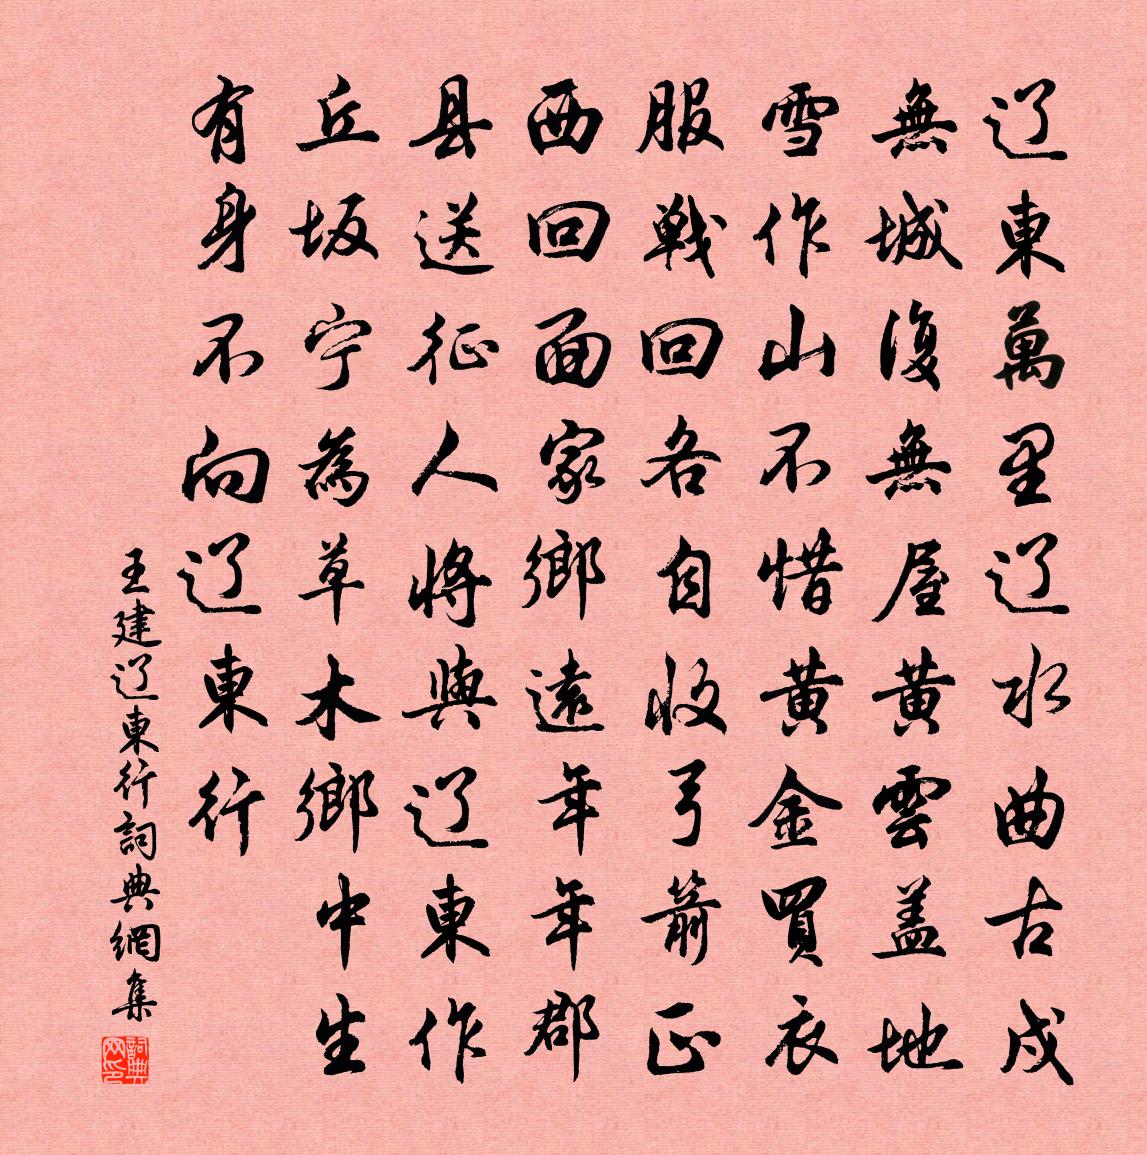 辽東萬里辽水曲古戍
無城復無屋黄雲盖地
雪作山不惜黄金買衣
服戦回各自收弓箭正
西回面家鄉遠年年郡
县送征人將與辽東作
丘坂宁為草木鄉中生
有身不向辽東行
王建辽東行詞典網集
詞典网印